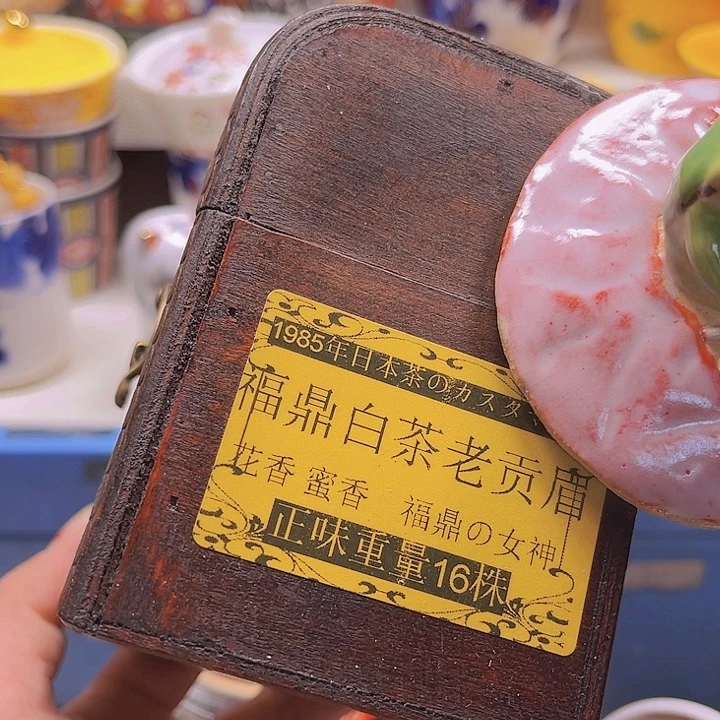 1985年日本茶のカスタ
福鼎白茶老贡眉
花香 蜜香 福鼎の女神
正味重量16株